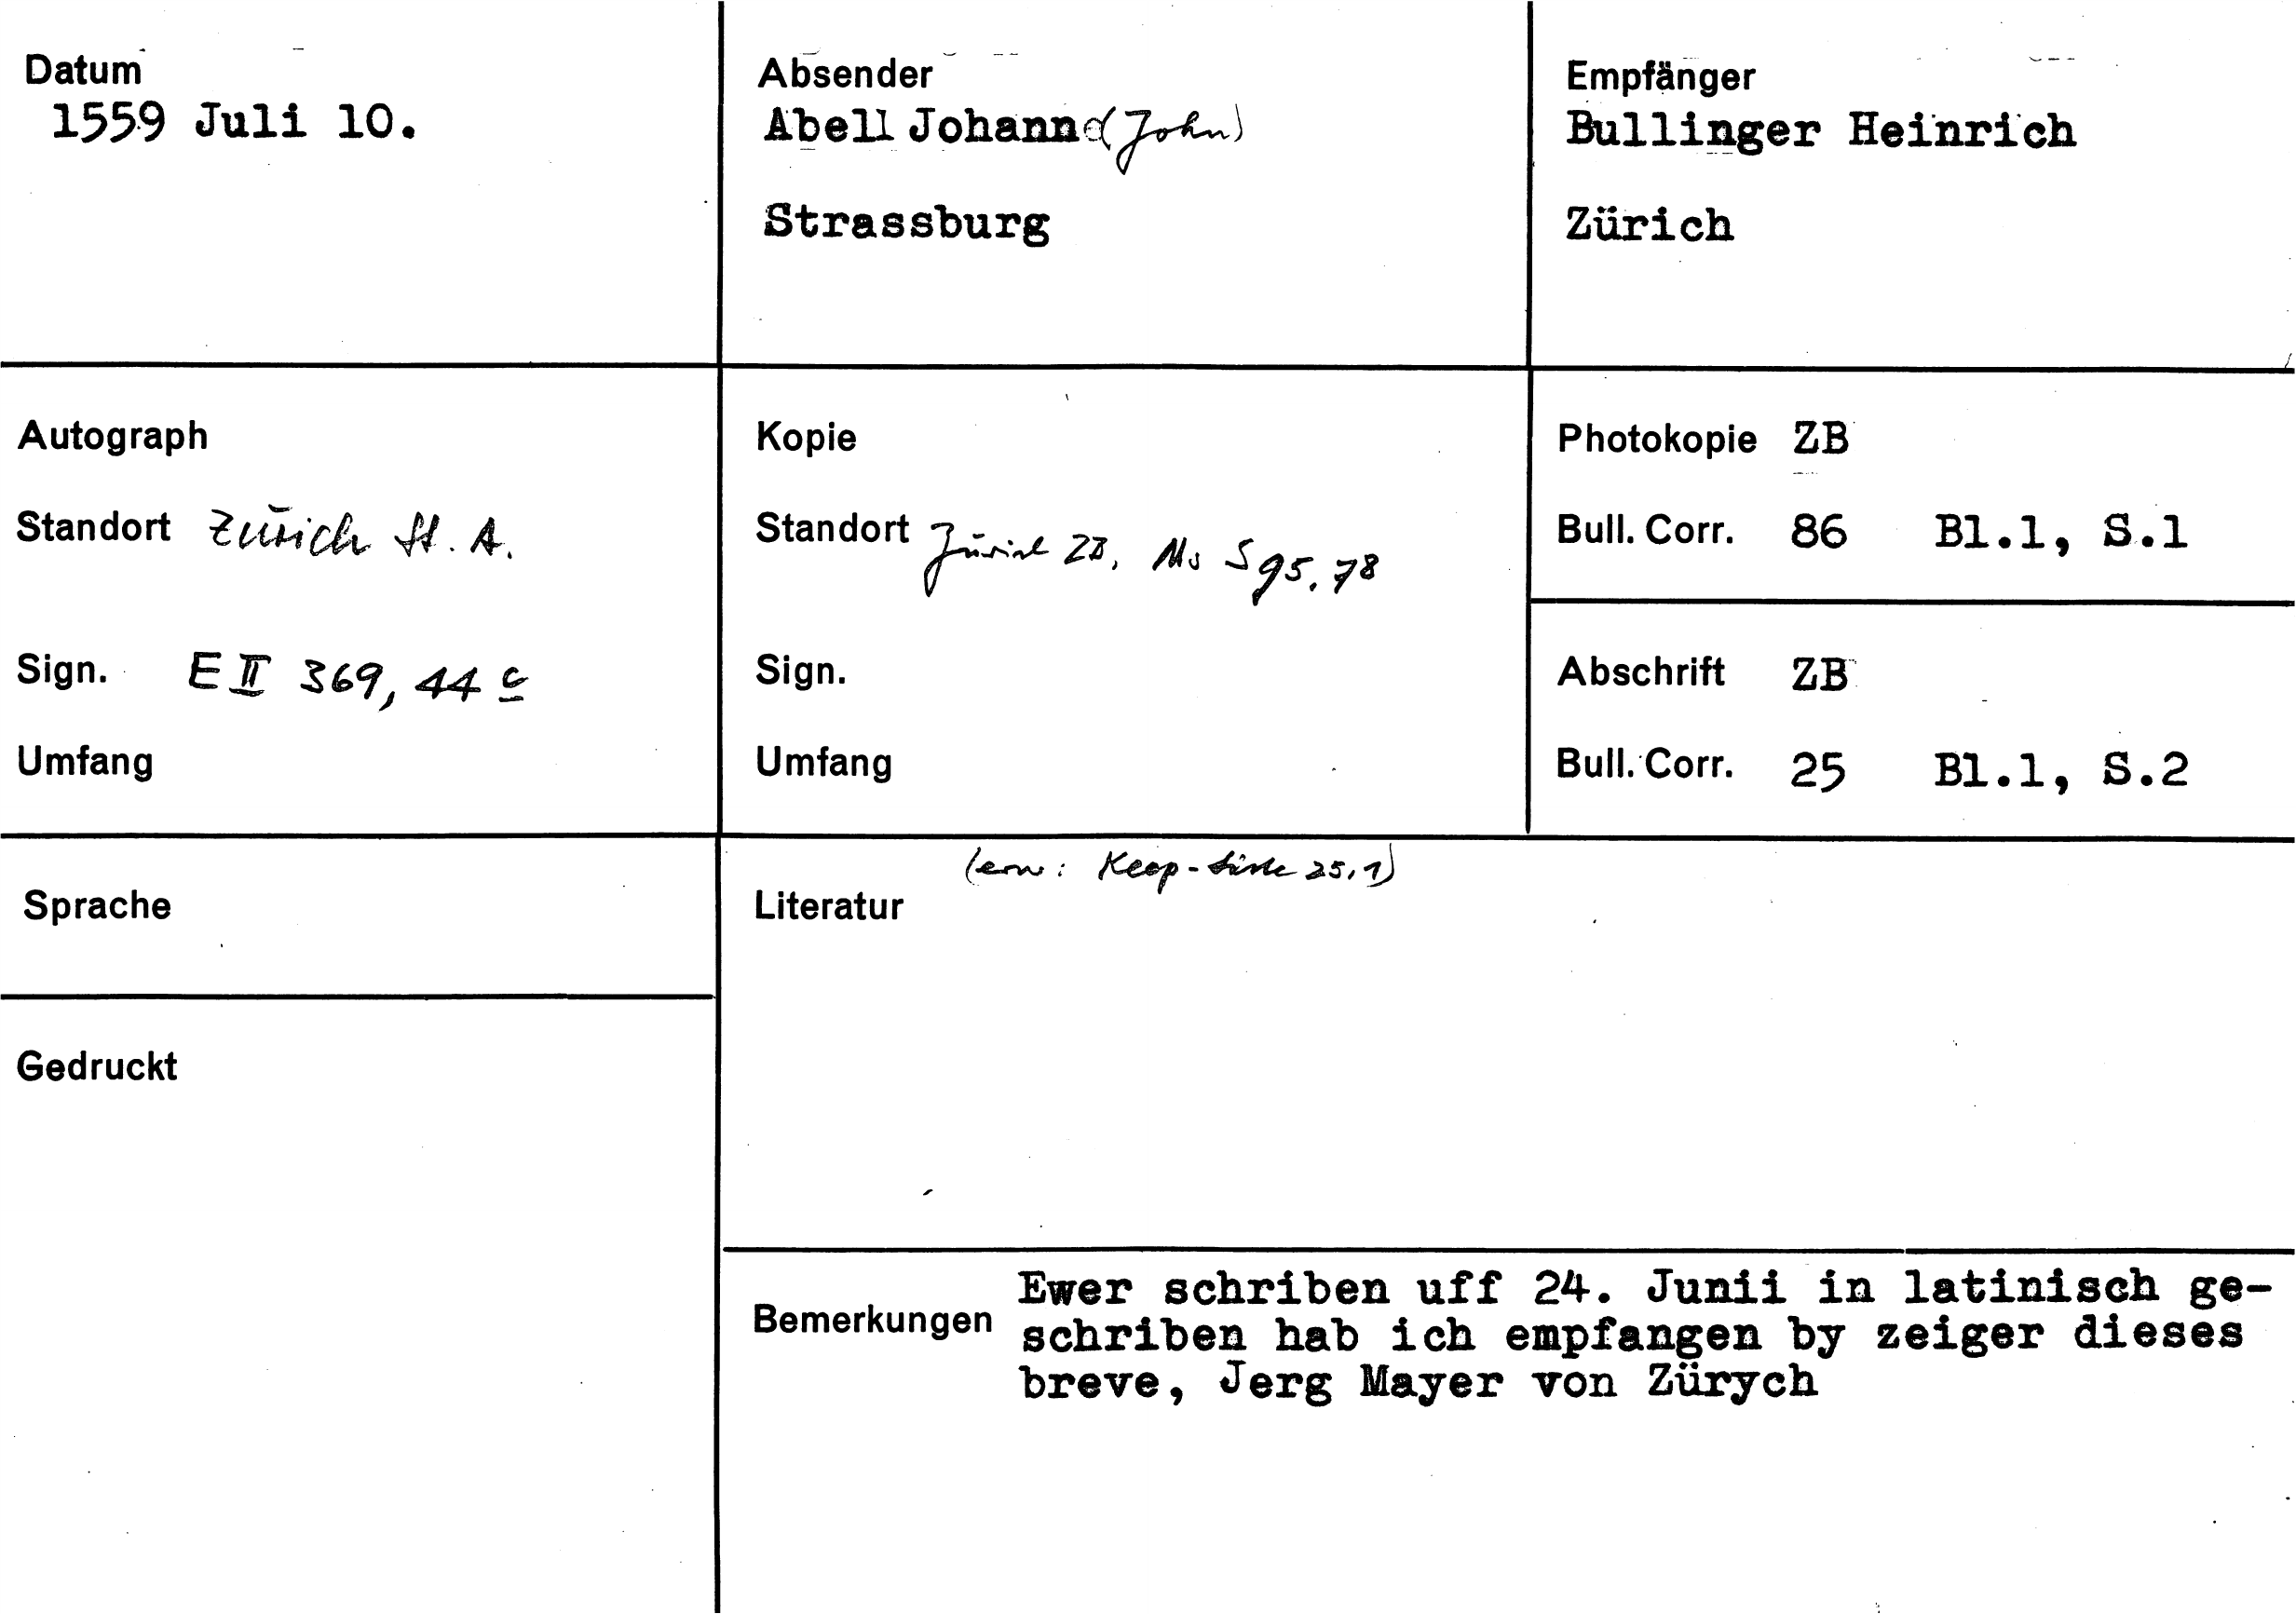 Datum
1559 Juli 10.
Absender
Abell Johann (John)
Strassburg
Empfänger
Bullinger Heinrich
Zürich
Autograph
Standort Zürich St. A.
Sign. E II 369, 44 c
Umfang
Kopie
Standort Zürich ZB, Ms S 95, 78
Sign.
Umfang
Photokopie ZB
Bull. Corr. 86 Bl.1, S.1
Abschrift ZB
Bull. Corr. 25 Bl.1, S.2
Sprache
Gedruckt
25,1)
Literatur
Bemerkungen
Ewer schriben uff 24. Junii in latinisch ge-
schriben hab ich empfangen by zeiger dieses
breve, Jerg Mayer von Zürych